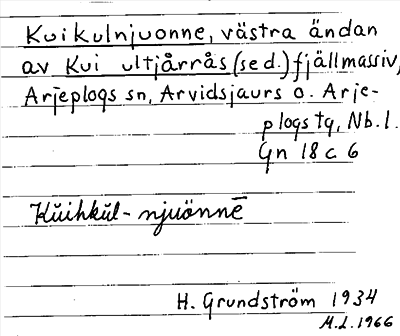 Kuikulnjuonne, västra ändan
av Kui ultjårrås (se d.) fjällmassiv,
Arjeplogs sn, Arvidsjaurs o. Arje-
plogs tg, Nb. l.
Gn 18 c 6
Kŭihkŭl- njuönnē
H. Grundström 1934
M.L. 1966